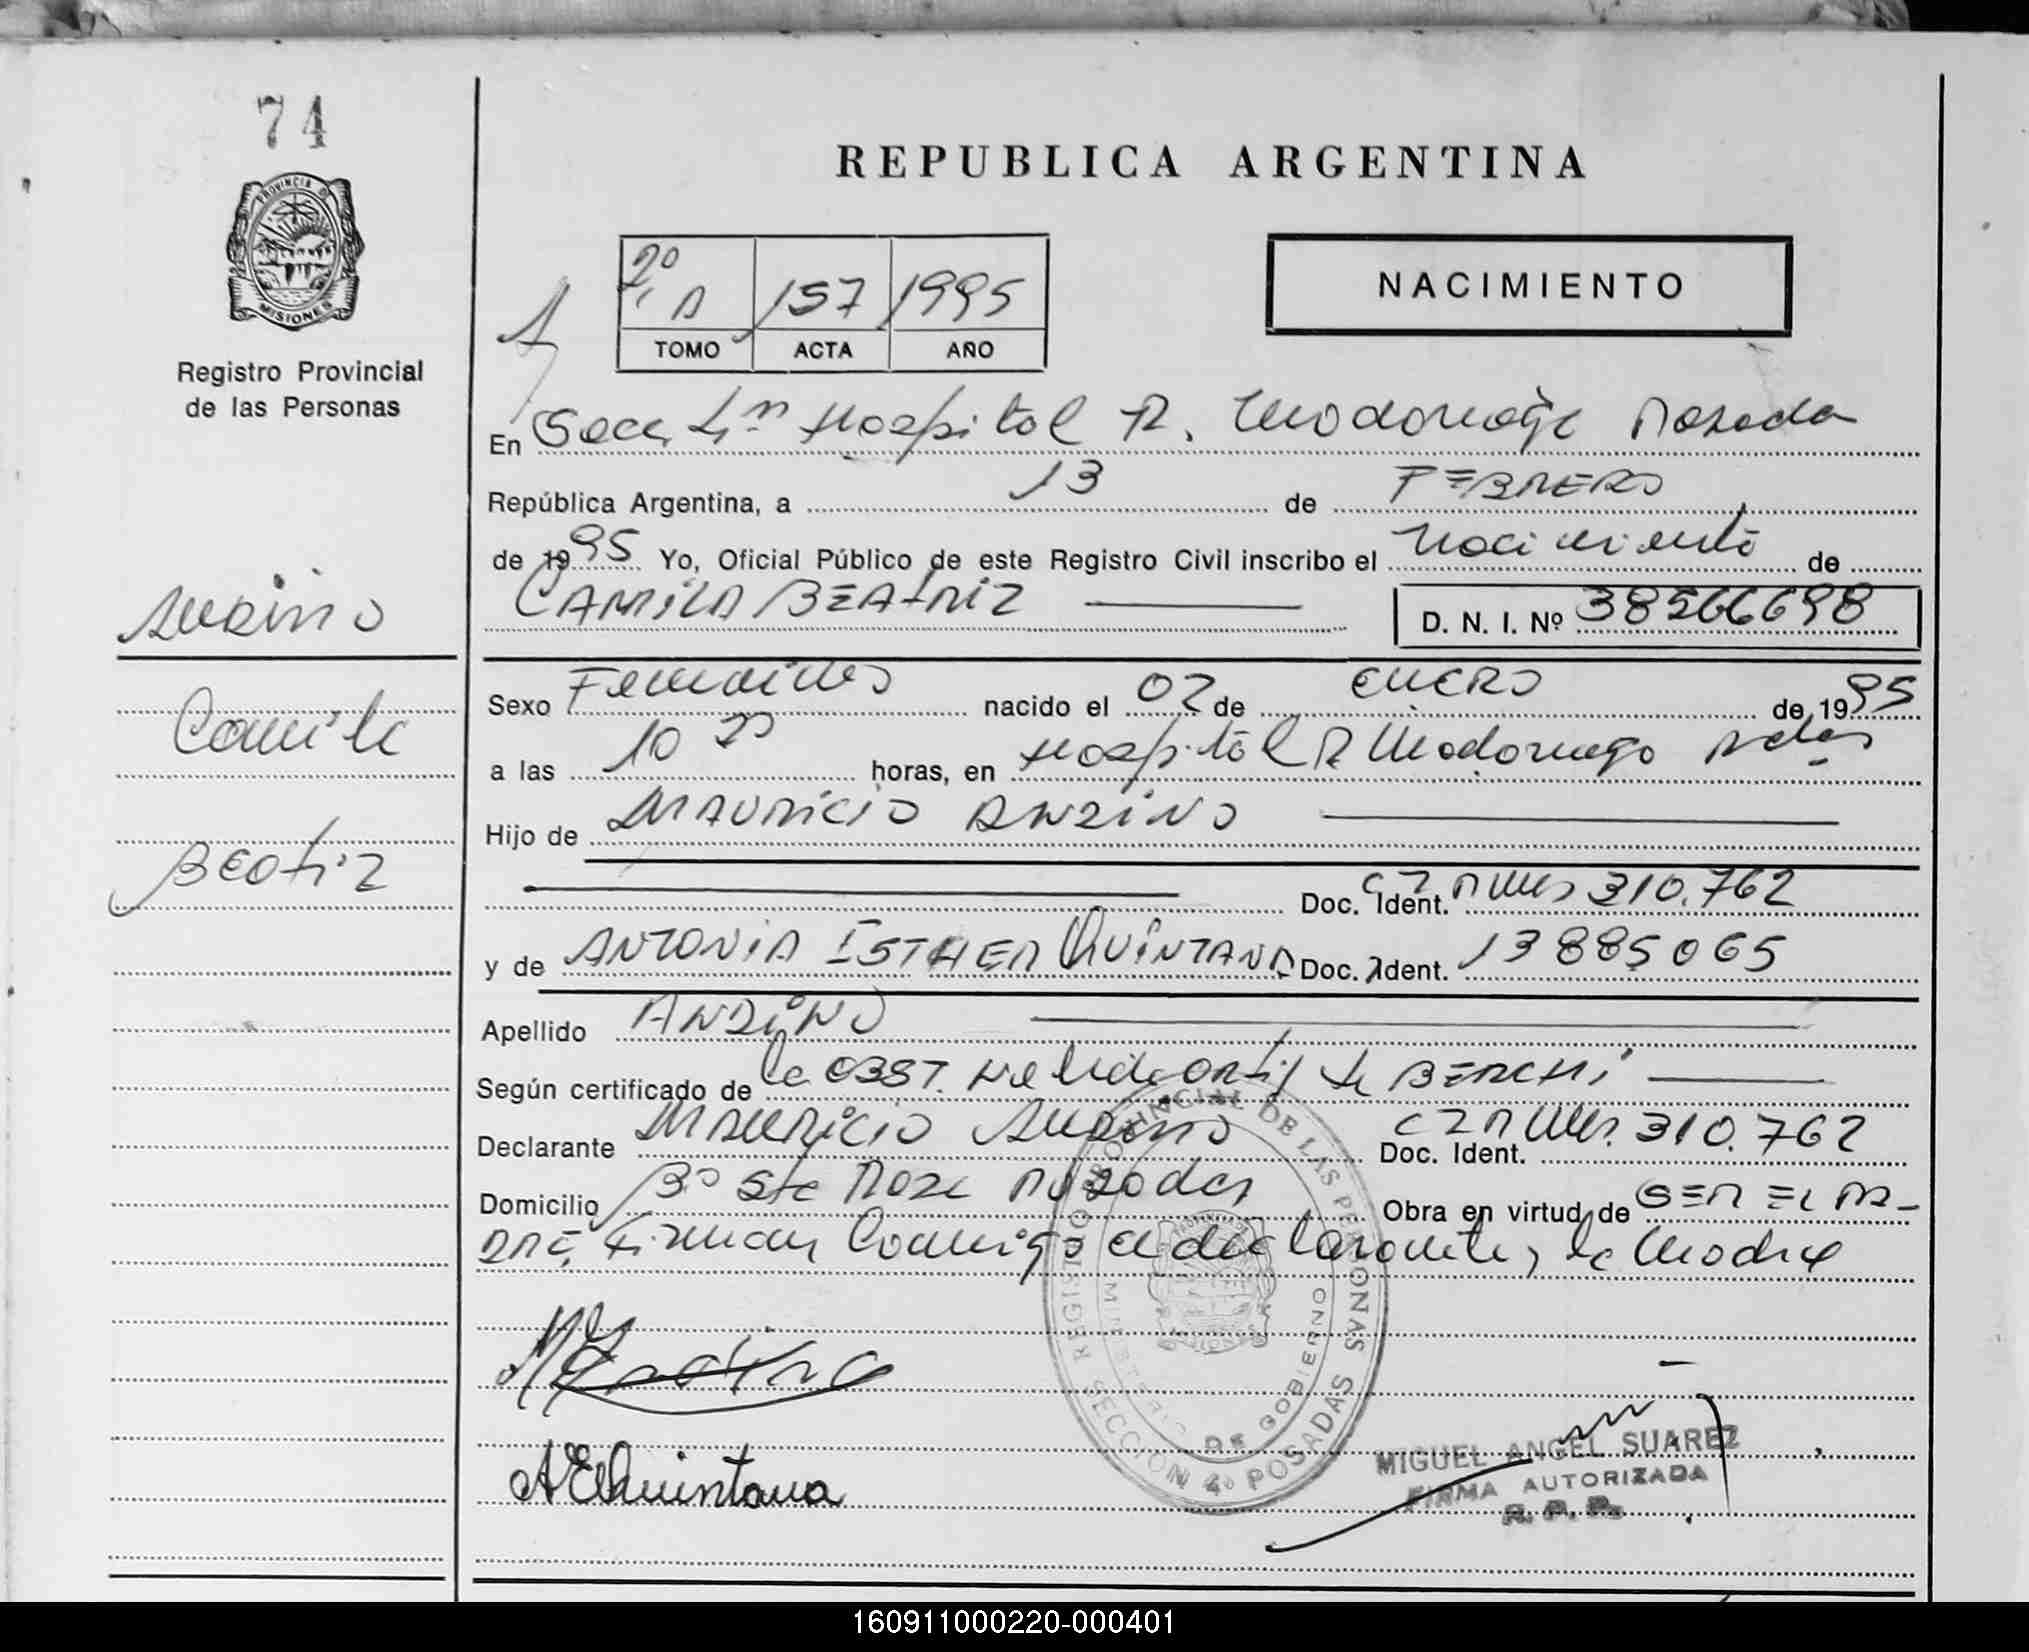 74
PROVINCIA DE
MISIONES
Registro Provincial
de las Personas
REPUBLICA ARGENTINA
2º A 157 1995
TOMO ACTA AÑO
NACIMIENTO
En Secc 4ª Hospital R. Madariaga Posadas
República Argentina, a 13 de FEBRERO
de 1995 Yo, Oficial Público de este Registro Civil inscribo el Nacimiento de
CAMILA BEATRIZ D. N. I. Nº 38566698
Andino
Camila
Beatriz
Sexo Femenino nacido el 02 de ENERO de 1995
a las 10 horas, en Hospital R Madariaga Pdas
Hijo de MAURICIO ANDINO
Doc. Ident. 310.762
y de ANTONIA ESTHER QUINTANA Doc. Ident. 13885065
Apellido ANDINO
Según certificado de la OBST. Nelida Ortiz de BERCHI
Declarante MAURICIO Andino Doc. Ident. 310.762
Domicilio Bº Sta Rosa Posadas Obra en virtud de SER EL PA-
DRE, Firman Conmigo el declarante y la Madre
REGISTRO PROVINCIAL DE LAS PERSONAS
MINISTERIO DE GOBIERNO
SECCION 4º POSADAS
AEQuintana
MIGUEL ANGEL SUAREZ
FIRMA AUTORIZADA
R. P. P.
160911000220-000401